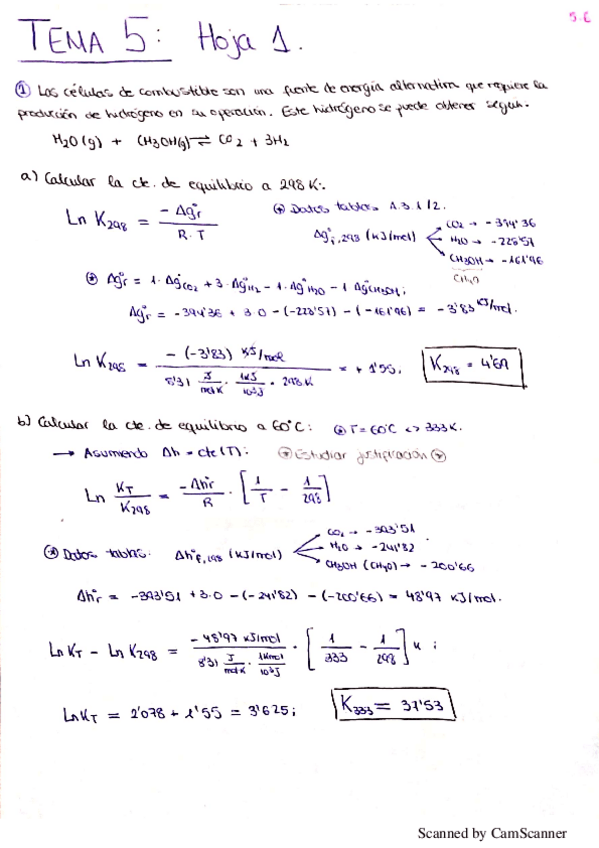 5.C
TEMA 5: Hoja 1.
① Las células de combustible son una fuente de energía alternativa que requiere la
producción de hidrógeno en su operación. Este hidrógeno se puede obtener según:
H2O(g) + CH3OH(g) ⇌ CO2 + 3H2
a) Calcular la cte. de equilibrio a 298 K:
Ln K298 = -Δg°r / R·T
⊛ Datos tablas A.3.1/2.
Δg°f,298 (kJ/mol)
CO2 → -394'36
H2O → -228'57
CH3OH → -161'96
CH4O
⊛ Δg°r = 1·Δg°CO2 + 3·Δg°H2 - 1·Δg°H2O - 1·Δg°CH3OH;
Δg°r = -394'36 + 3·0 - (-228'57) - (-161'96) = -3'83 kJ/mol.
Ln K298 = -(-3'83) kJ/mol / 8'31 J/molK · 1kJ/10³J · 298K = +1'55.
K298 = 4'69
b) Calcular la cte. de equilibrio a 60°C: ⊛ T=60°C <> 333K.
→ Asumiendo Δh = cte(T): ⊛ Estudiar justificación ⊛
Ln KT/K298 = -Δh°r/R · [1/T - 1/298]
⊛ Datos tablas: Δh°f,298 (kJ/mol)
CO2 → -393'51
H2O → -241'82
CH3OH (CH4O) → -200'66
Δh°r = -393'51 + 3·0 - (-241'82) - (-200'66) = 48'97 kJ/mol.
Ln KT - Ln K298 = -48'97 kJ/mol / 8'31 J/molK · 1kmol/10³J · [1/333 - 1/298] K ;
LnKT = 2'078 + 1'55 = 3'625;
K333 = 37'53
Scanned by CamScanner